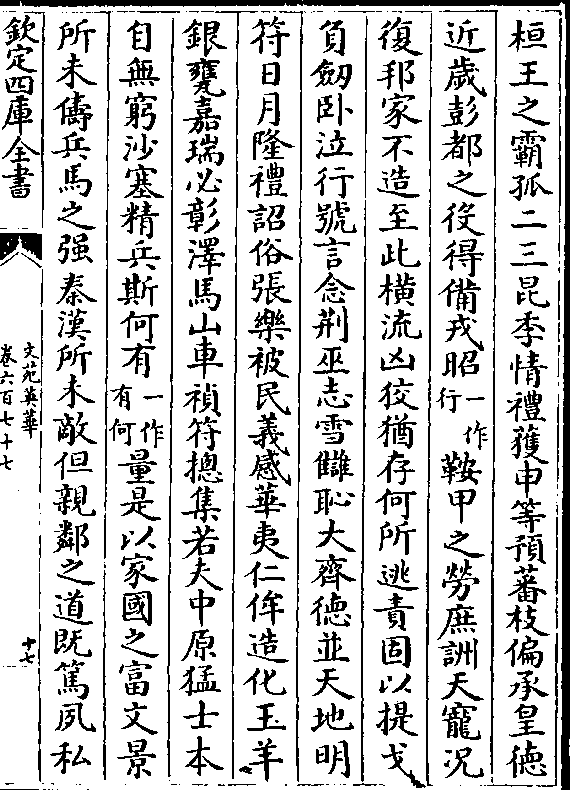 桓王之霸孤二三昆季情禮獲申等預蕃枝偏承皇德
近歲彭都之役得備戎昭一作行鞍甲之勞庶詶天寵況
復邦家不造至此橫流凶狡猶存何所逃責固以提戈
負劒卧泣行號言念荆巫志雪讎恥大齊德並天地明
符日月隆禮詔俗張樂被民義感華夷仁侔造化玉羊
銀甕嘉瑞必彰澤馬山車禎符摠集若夫中原猛士本
自無窮沙塞精兵斯何有一作有何量是以家國之富文景
所未儔兵馬之强秦漢所未敵但親鄰之道既篤夙私
欽定四庫全書
文苑英華
卷六百七十七
十七